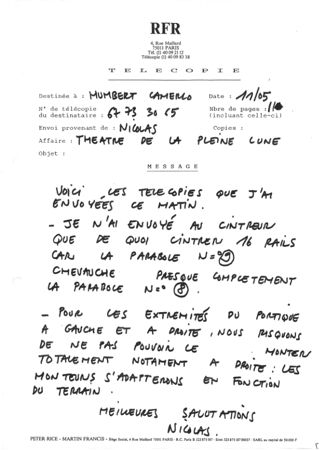 RFR
4, Rue Maillard
75011 PARIS
Tél 01 40 09 21 12
Télécopie 01 40 09 82 38
TELECOPIE
Destinée à : HUMBERT CAMERLO Date : 11/05
N° de télécopie du destinataire : 67 73 30 15 Nbre de pages : (incluant celle-ci)
Envoi provenant de : NICOLAS Copies :
Affaire : THEATRE DE LA PLEINE LUNE
Objet :
MESSAGE
VOICI LES TELECOPIES QUE J'AI
ENVOYÉES CE MATIN.
- JE N'AI ENVOYÉ AU CINTREUR
QUE DE QUOI CINTRER 16 RAILS
CAR LA PARABOLE N=°9
CHEVAUCHE PRESQUE COMPLETEMENT
LA PARABOLE N=° 8.
- POUR LES EXTREMITÉS DU PORTIQUE
A GAUCHE ET A DROITE, NOUS RISQUONS
DE NE PAS POUVOIR LE MONTER
TOTALEMENT NOTAMENT A DROITE : LES
MONTEURS S'ADAPTERONS EN FONCTION
DU TERRAIN.
MEILLEURES SALUTATIONS
NICOLAS.
PETER RICE - MARTIN FRANCIS - Siège Social, 4 Rue Maillard 75011 PARIS